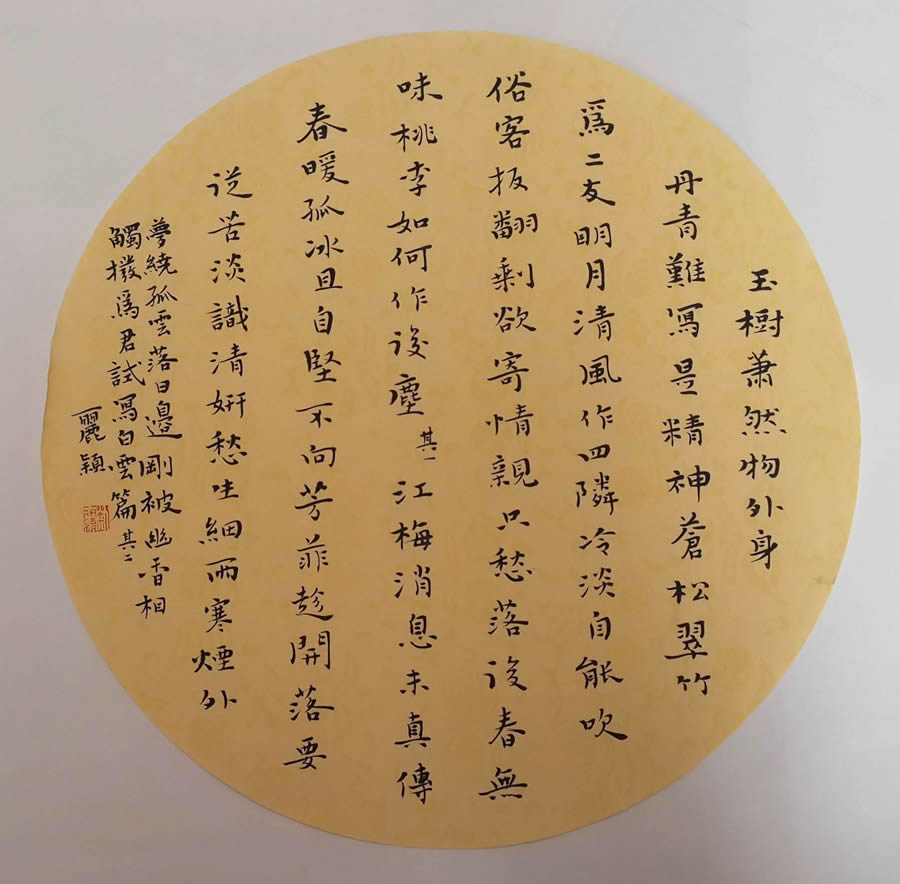 玉樹蕭然物外身
丹青難寫是精神蒼松翠竹
爲二友明月清風作四隣冷淡自能吹
俗客扳翻剩欲寄情親只愁落後春無
味桃李如何作後塵其一江梅消息未真傳
春暖孤冰且自堅不向芳菲趁開落要
從苦淡識清妍愁生細雨寒煙外
夢繞孤雲落日邊剛被幽香相
觸撥爲君試寫白雲篇其二
麗穎